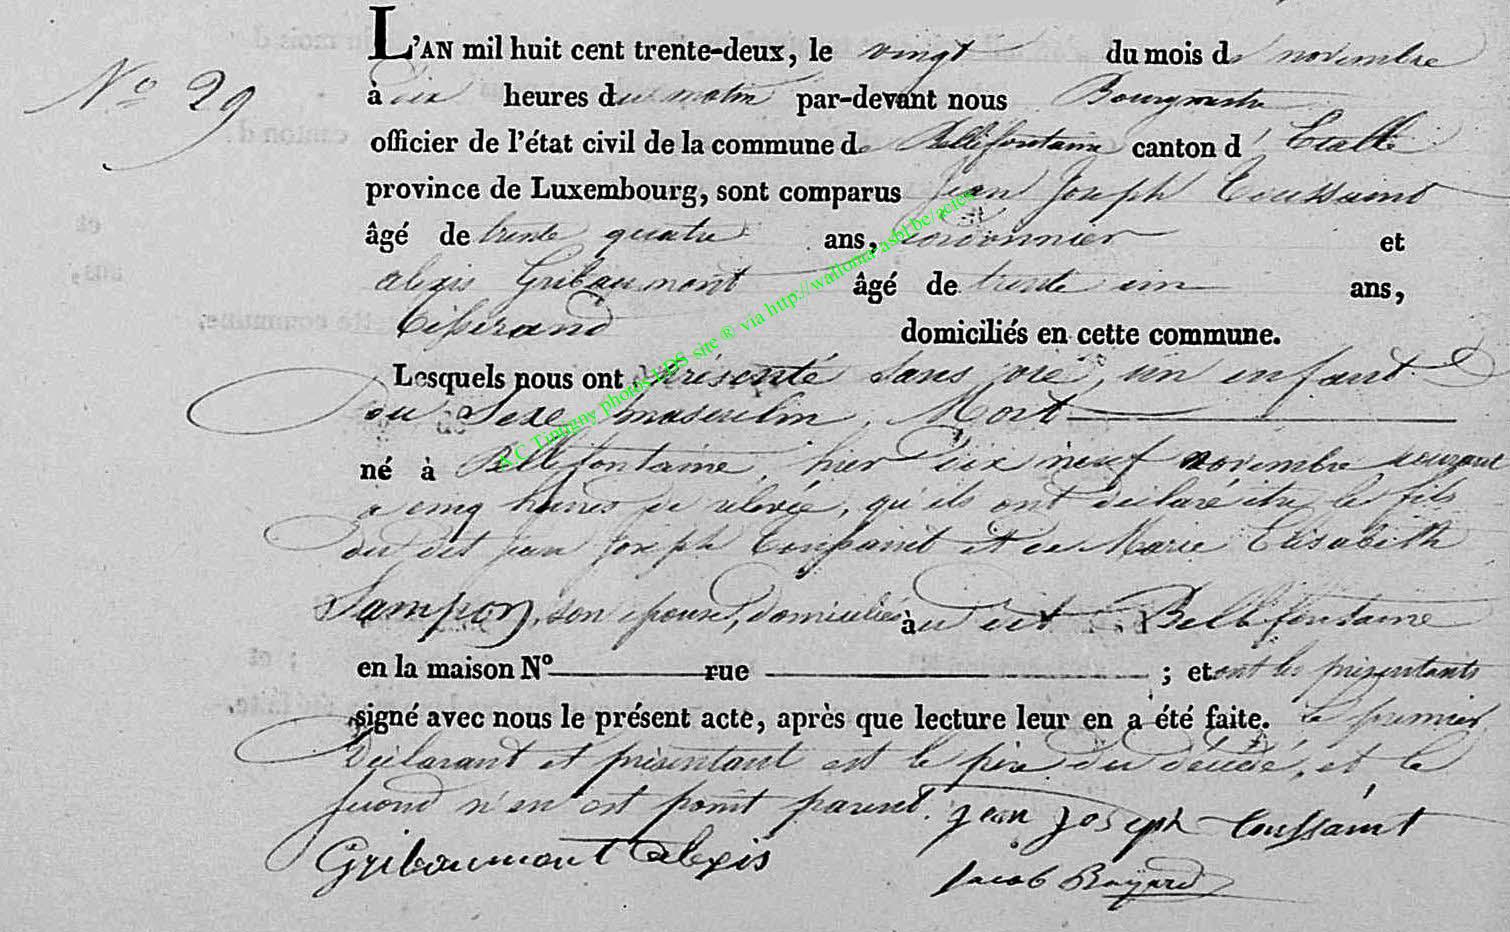 L'AN mil huit cent trente-deux, le vingt du mois de novembre
N.o 29
à dix heures du matin par-devant nous Bourgmestre
officier de l'état civil de la commune de Bellefontaine canton d'Etalle
province de Luxembourg, sont comparus Jean Joseph Toussaint
âgé de trente quatre ans, cordonnier et
alexis Gribaumont âgé de trente un ans,
Tisserand domiciliés en cette commune.
Lesquels nous ont présenté sans vie, un enfant
du Sexe masculin, Mort
né à Bellefontaine hier dix neuf novembre courant
a cinq heures de relevée, qu'ils ont déclaré être le fils
du dit jean joseph Toussaint et de Marie Elisabeth
Sampon, son épouse, domiciliés au dit Bellefontaine
en la maison No rue ; et ont les présentants
signé avec nous le présent acte, après que lecture leur en a été faite. le premier
Déclarant et présentant est le père du décédé, et le
second n'en est point parent. jean joseph toussaint
Gribaumont alexis
Jacob Bayard
A.C Tintigny photos LDS site ® via http://wallonia-asbl.be/actes